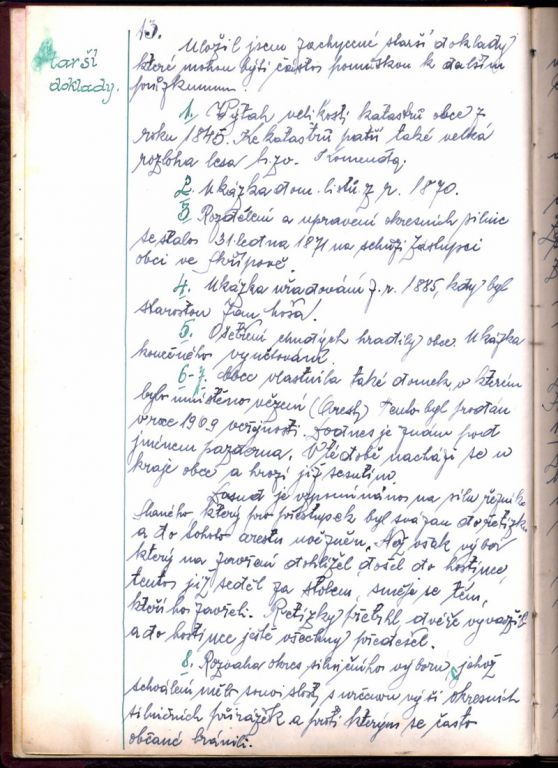 13.
Starší
doklady.
Uložil jsem zachycené starší doklady,
které mohou býti často pomůckou k dalším
průzkumum.
1. Výtah velikosti katastrů obce z
roku 1845. Ke katastrů patří také velká
rozloha lesa t.zv. Komenda.
2. Ukázka dom. listů z r. 1870.
3. Rozdělení a upravení okresních silnic
se stalos 31. ledna 1871 na schůzi zástupců
obcí ve Skřípově.
4. Ukázka úřadování z r. 1885, kdy byl
starostou Jan
5. Ošetření chudých hradily obce. Ukázka
konečného vyúčtování.
6-7. Obce vlastnila také domek, v kterém
bylo umístěno vězení (Arest) Tento byl prodán
v roce 1909 veřejnosti. Podnes je znám pod
jménem pazderna. V té době nachází se v
kraje obce a hrozí již sesutím.
Posud je vzpomínános na sílu řezníka
Slaného který pro přestupek byl svázan do řetízku
a do tohoto arestu uvězněn. Než však výbor
který na zavření dohlížel došel do hostince,
tentos již seděl za stolem, směje se těm,
kteří ho zavřeli. Řetízky přetrhl, dvéře vyvrátil
a do hostince ještě všechny předešel.
8. Rozvaha okres. silničního výboru, jehož
schválení mělo souvislost s určenou výší okresních
silničních přirážek a proti kterým se často
občané bránili.